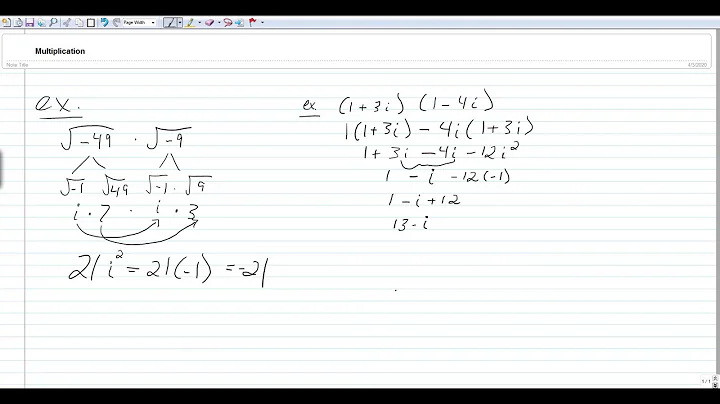 Page Width
Multiplication
Note Title
4/3/2020
ex.
√-49 · √-9
√-1 √49 √-1 · √9
i · 7 · i · 3
21 i² = 21(-1) = -21
ex. (1+3i) (1-4i)
1(1+3i) - 4i(1+3i)
1+3i-4i-12i²
1 - i -12(-1)
1-i+12
13-i
1/1